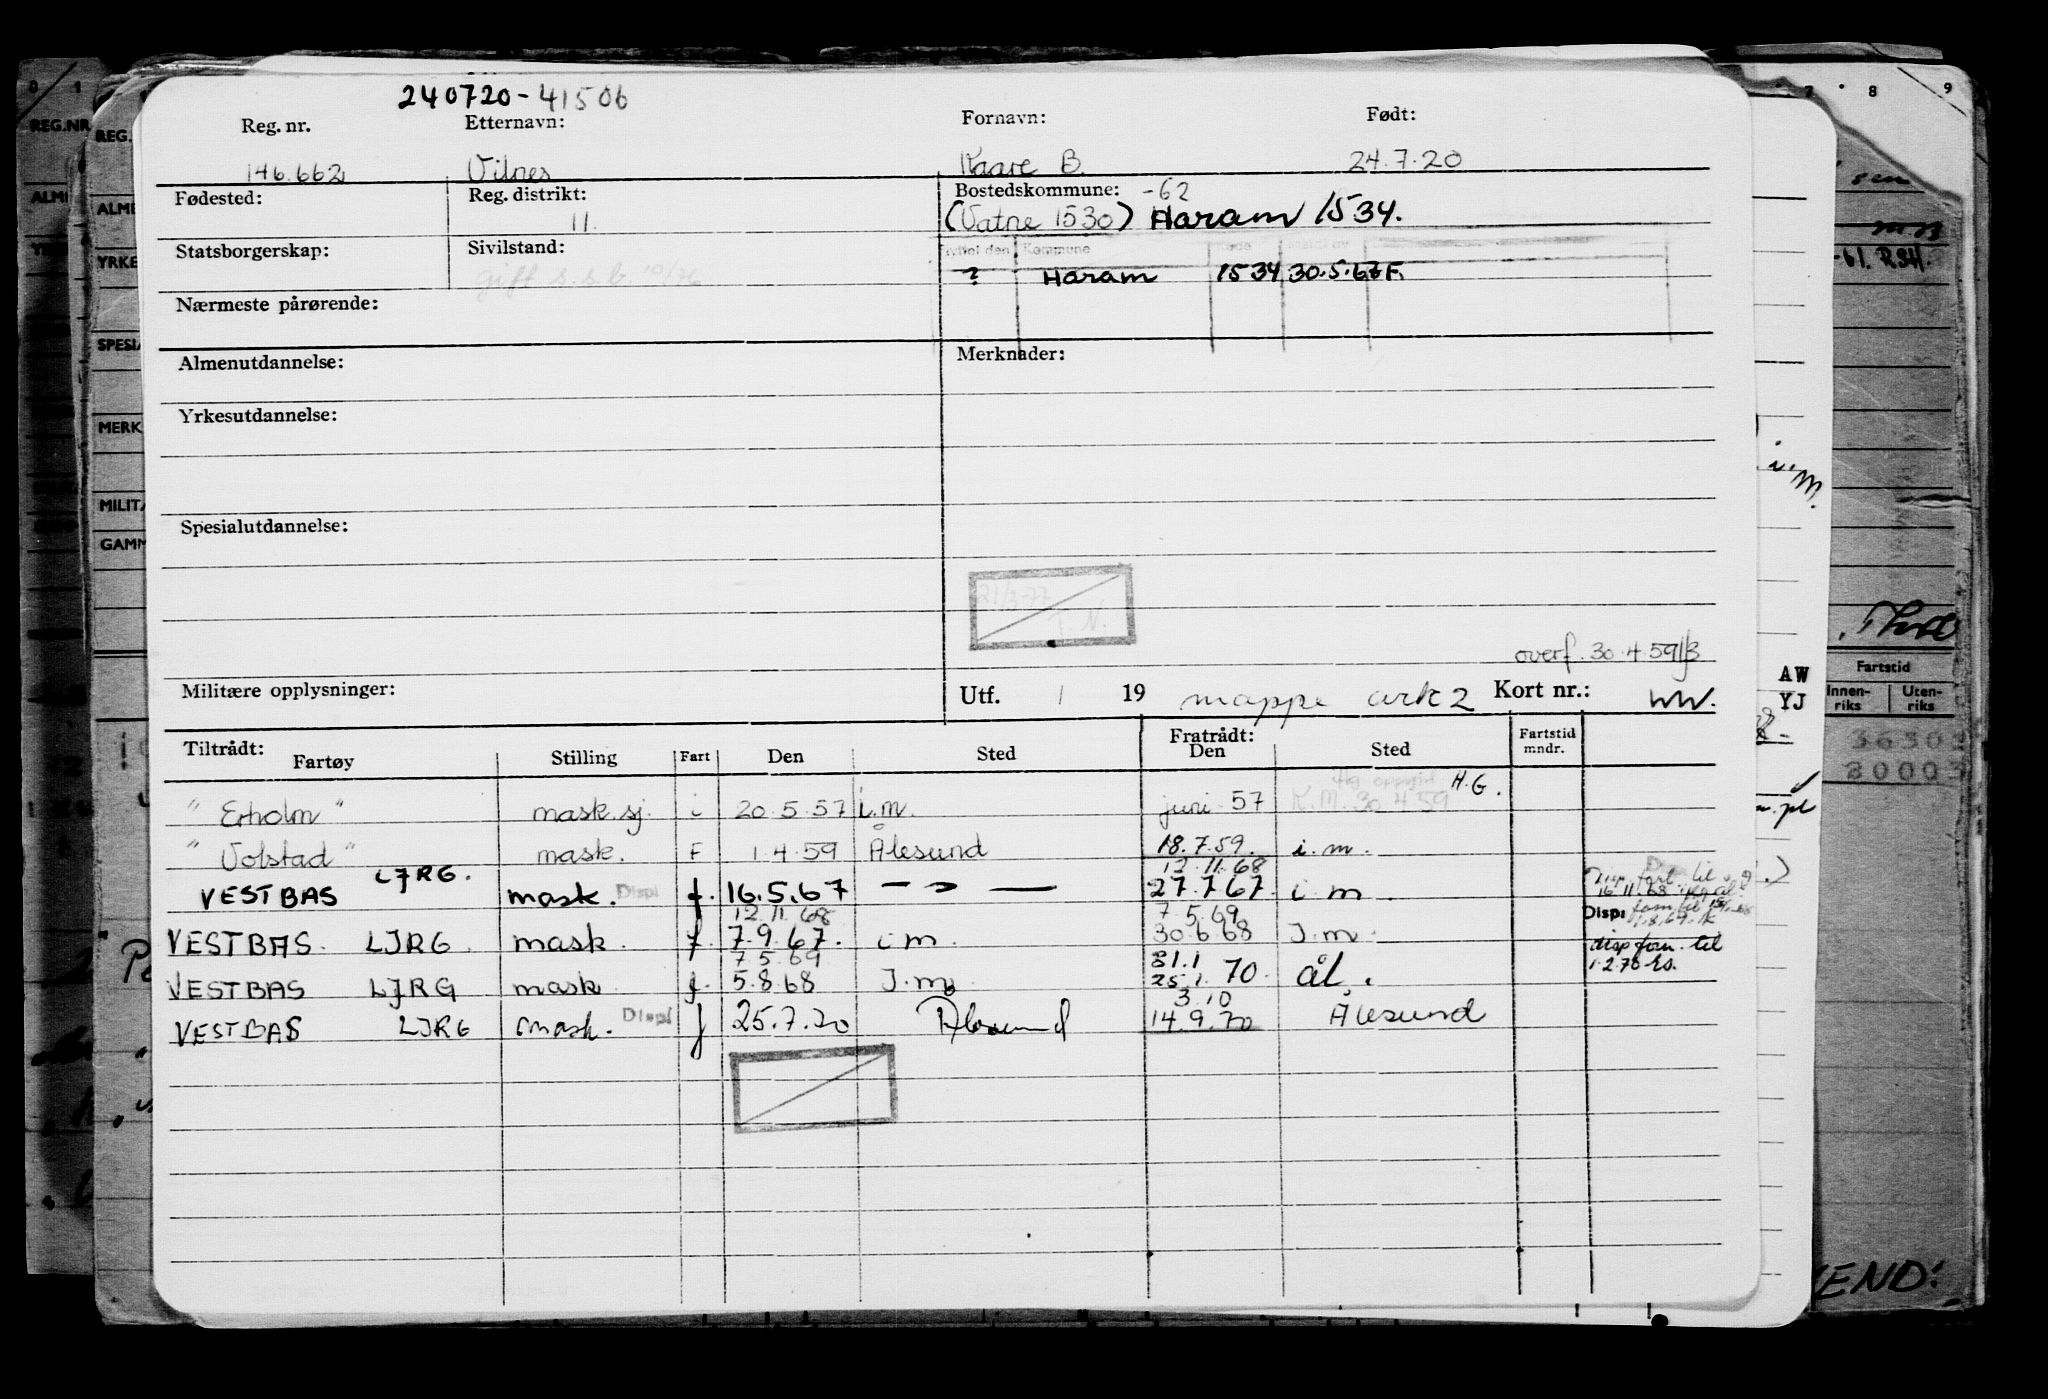 240720-41506
Reg. nr. Etternavn: Fornavn: Født:
146.662 Vilnes Kaare B. 24.7.20
Fødested: Reg. distrikt: Bostedskommune: -62
11. (Vatne 1530) Haram 1534.
Statsborgerskap: Sivilstand: Flyttet den Kommune Kode
gift s.s.b. 10/76 ? Haram 1534 30.5.67 F.
Nærmeste pårørende:
Almenutdannelse: Merknader:
Yrkesutdannelse:
Spesialutdannelse:
21/3-77
T.N.
overf. 30.4.59
Militære opplysninger: Utf. / 19 mappe ark 2 Kort nr.: WW.
Tiltrådt: Fratrådt: Fartstid
Fartøy Stilling Fart Den Sted Den Sted mndr.
H.G.
" Erholm " mask.sj. i 20.5.57 i.m. juni 57 K.M. 30.4.59
" Volstad " mask. F 1.4.59 Ålesund 18.7.59. i.m.
12.11.68
VESTBAS LJRG. mask. Displ f. 16.5.67 — " — 27.7.67. i m.
12.11.68 7.5.69
VESTBAS. LJRG. mask. f. 7.9.67. i m. 30.6.68 I.m.
disp forn. til
7.5.69 31.1
1.2.70
VESTBAS LJRG mask f. 5.8.68 I.m. 25.1.70. ål.
3.10
VESTBAS LJRG mask. Displ f 25.7.70 Ålesund 14.9.70 Ålesund
REG.NR
ALME
YRKE
SPESIA
MERK
MILITÆ
GAMM
7 8 9
-61. RSH.
i.M.
AW
YJ
Fartstid
Innen-riks Uten-riks
END: